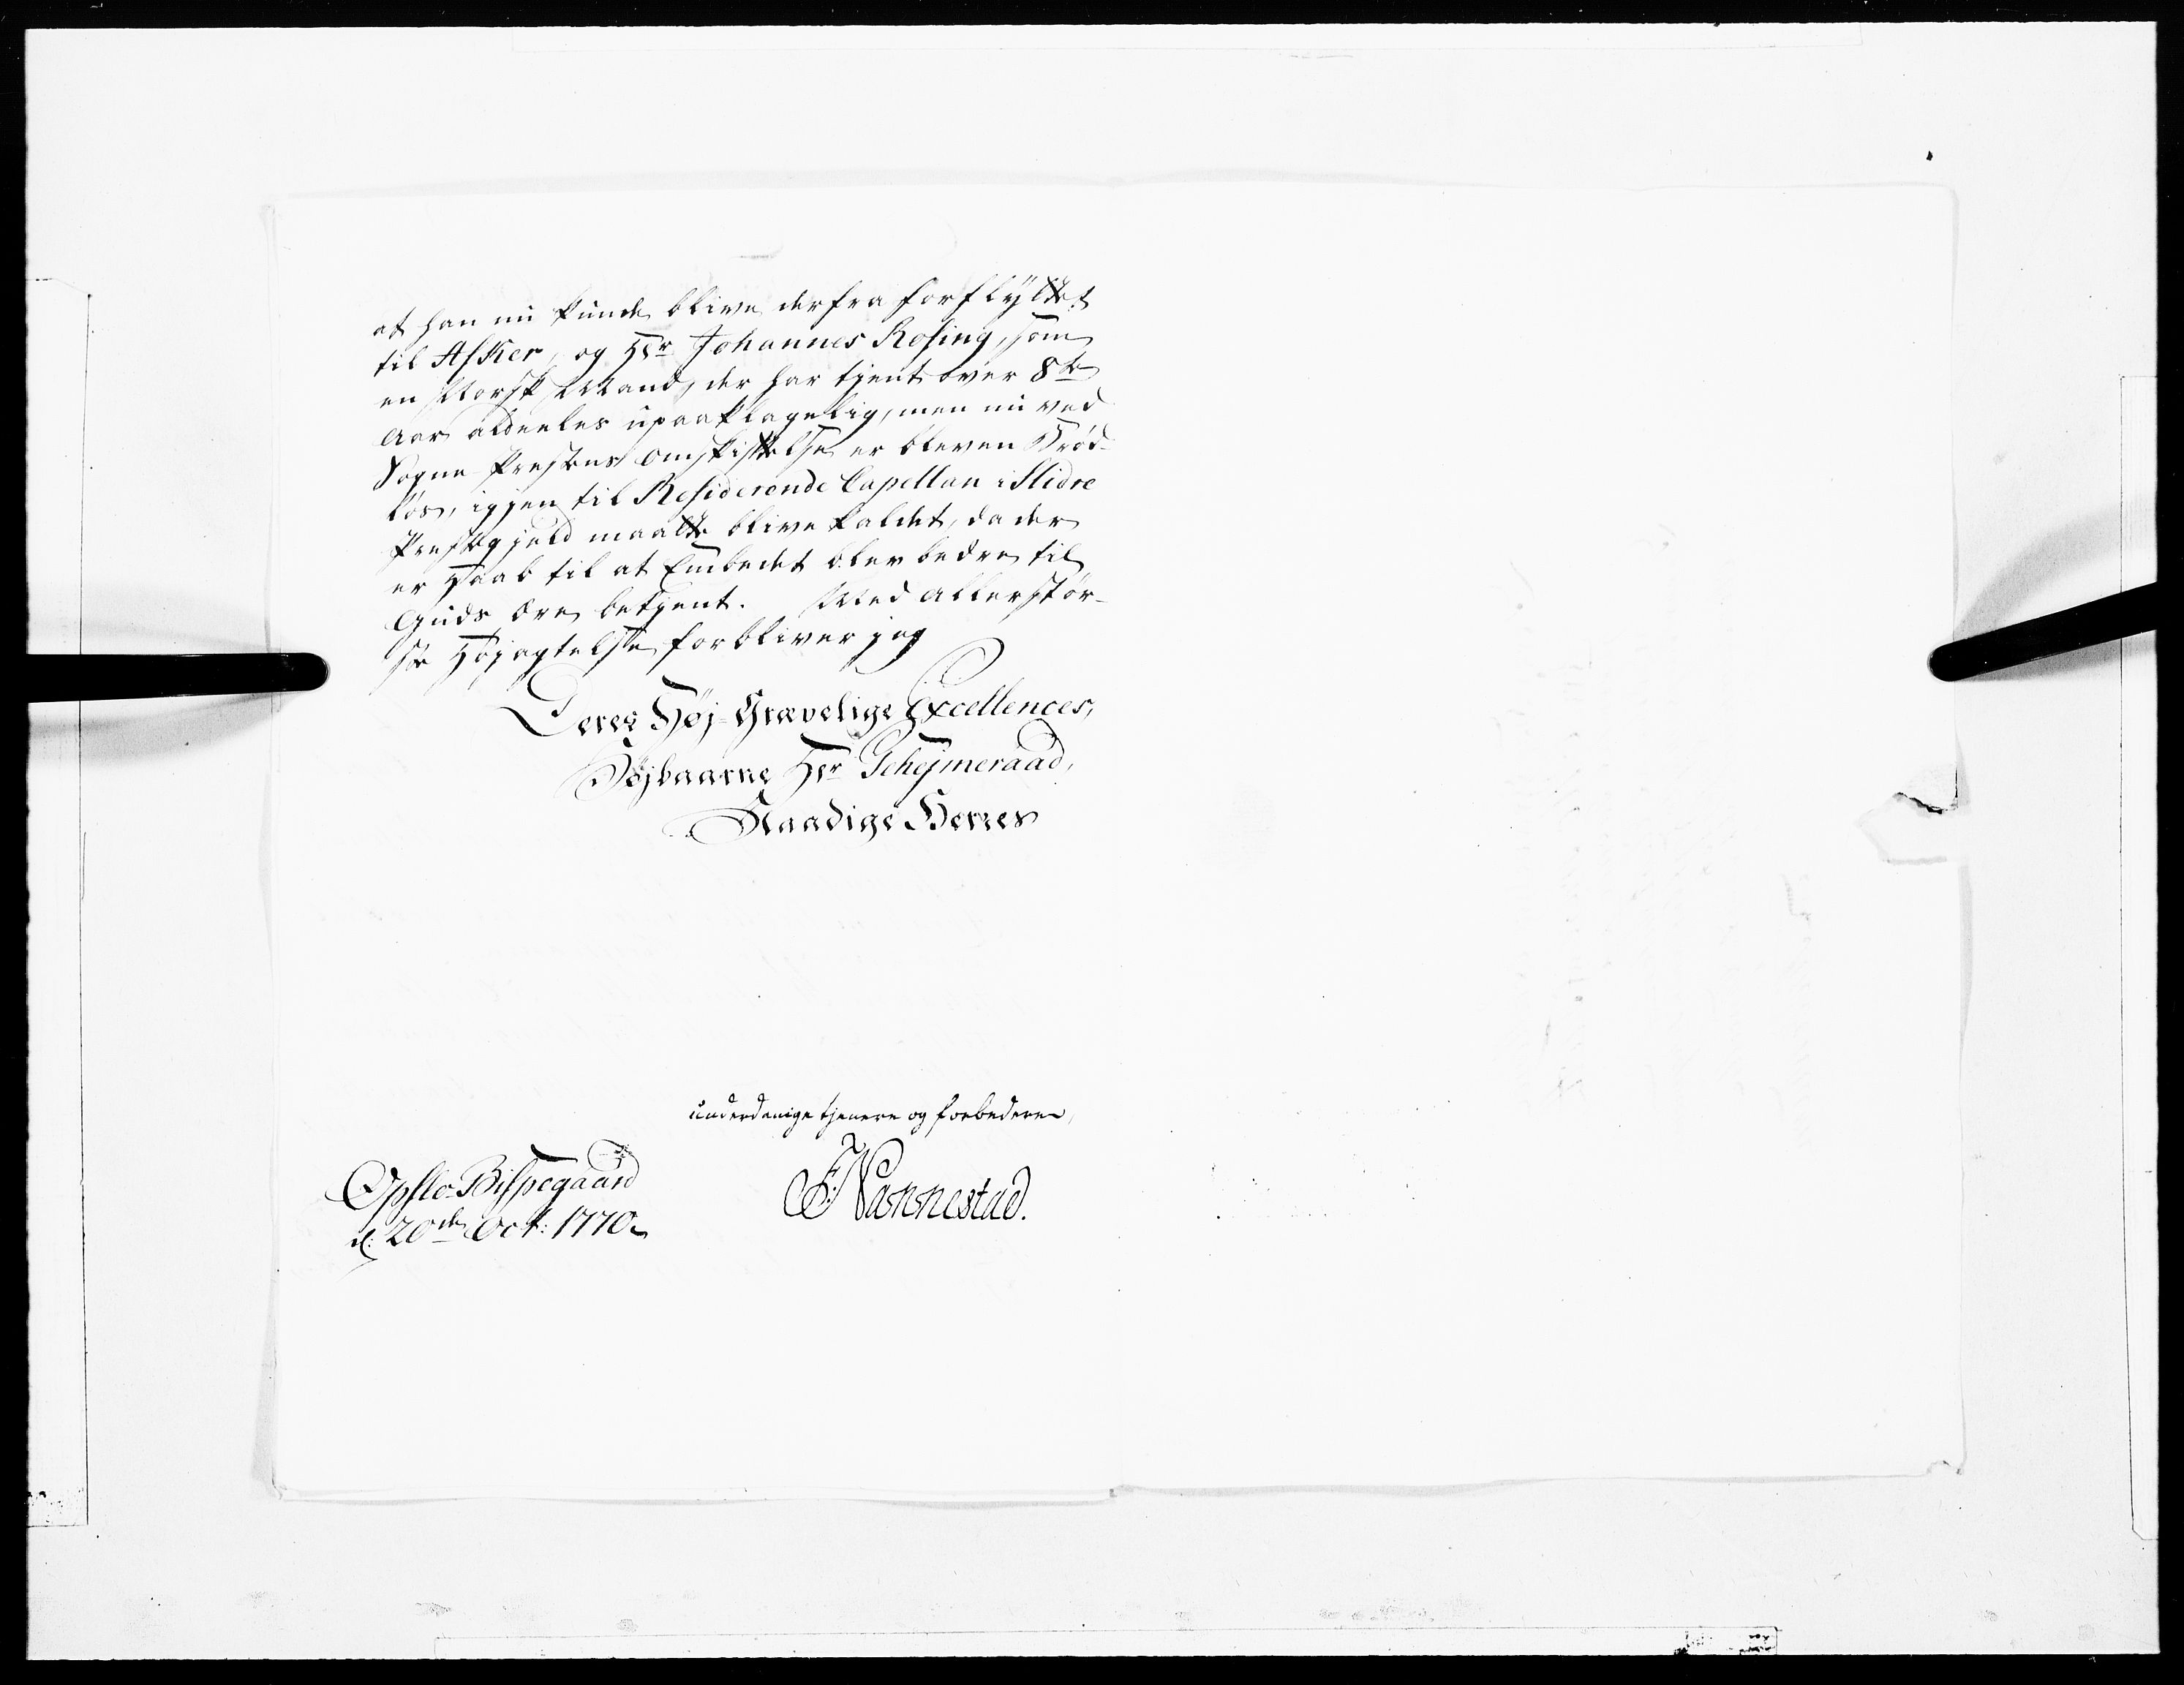 at han nu kunde blive derfra forflyttet
til Asker, og Hr Johannes Rosing, som
en Norsk Mand, der har tjent over 8te
Aar aldeeles upaaklagelig, men nu ved
Sogne-Prestens Omskiftelse er bleven Brød-
løs, igjen til Residerende Capellan i Slidre
Prestegjeld maatte blive kaldet, da der
er Haab til at Embedet blev bedre til
Guds Ære betjent. Med allerstør-
ste Højagtelse forbliver jeg
Deres Høj-Grævelige Excellences,
Højbaarne Hr Gehejmeraad,
Naadige Herres
underdanige tjenere og forbedere,
F: Nannestad.
Opslo-Bispegaard
d: 20de Oct: 1770.